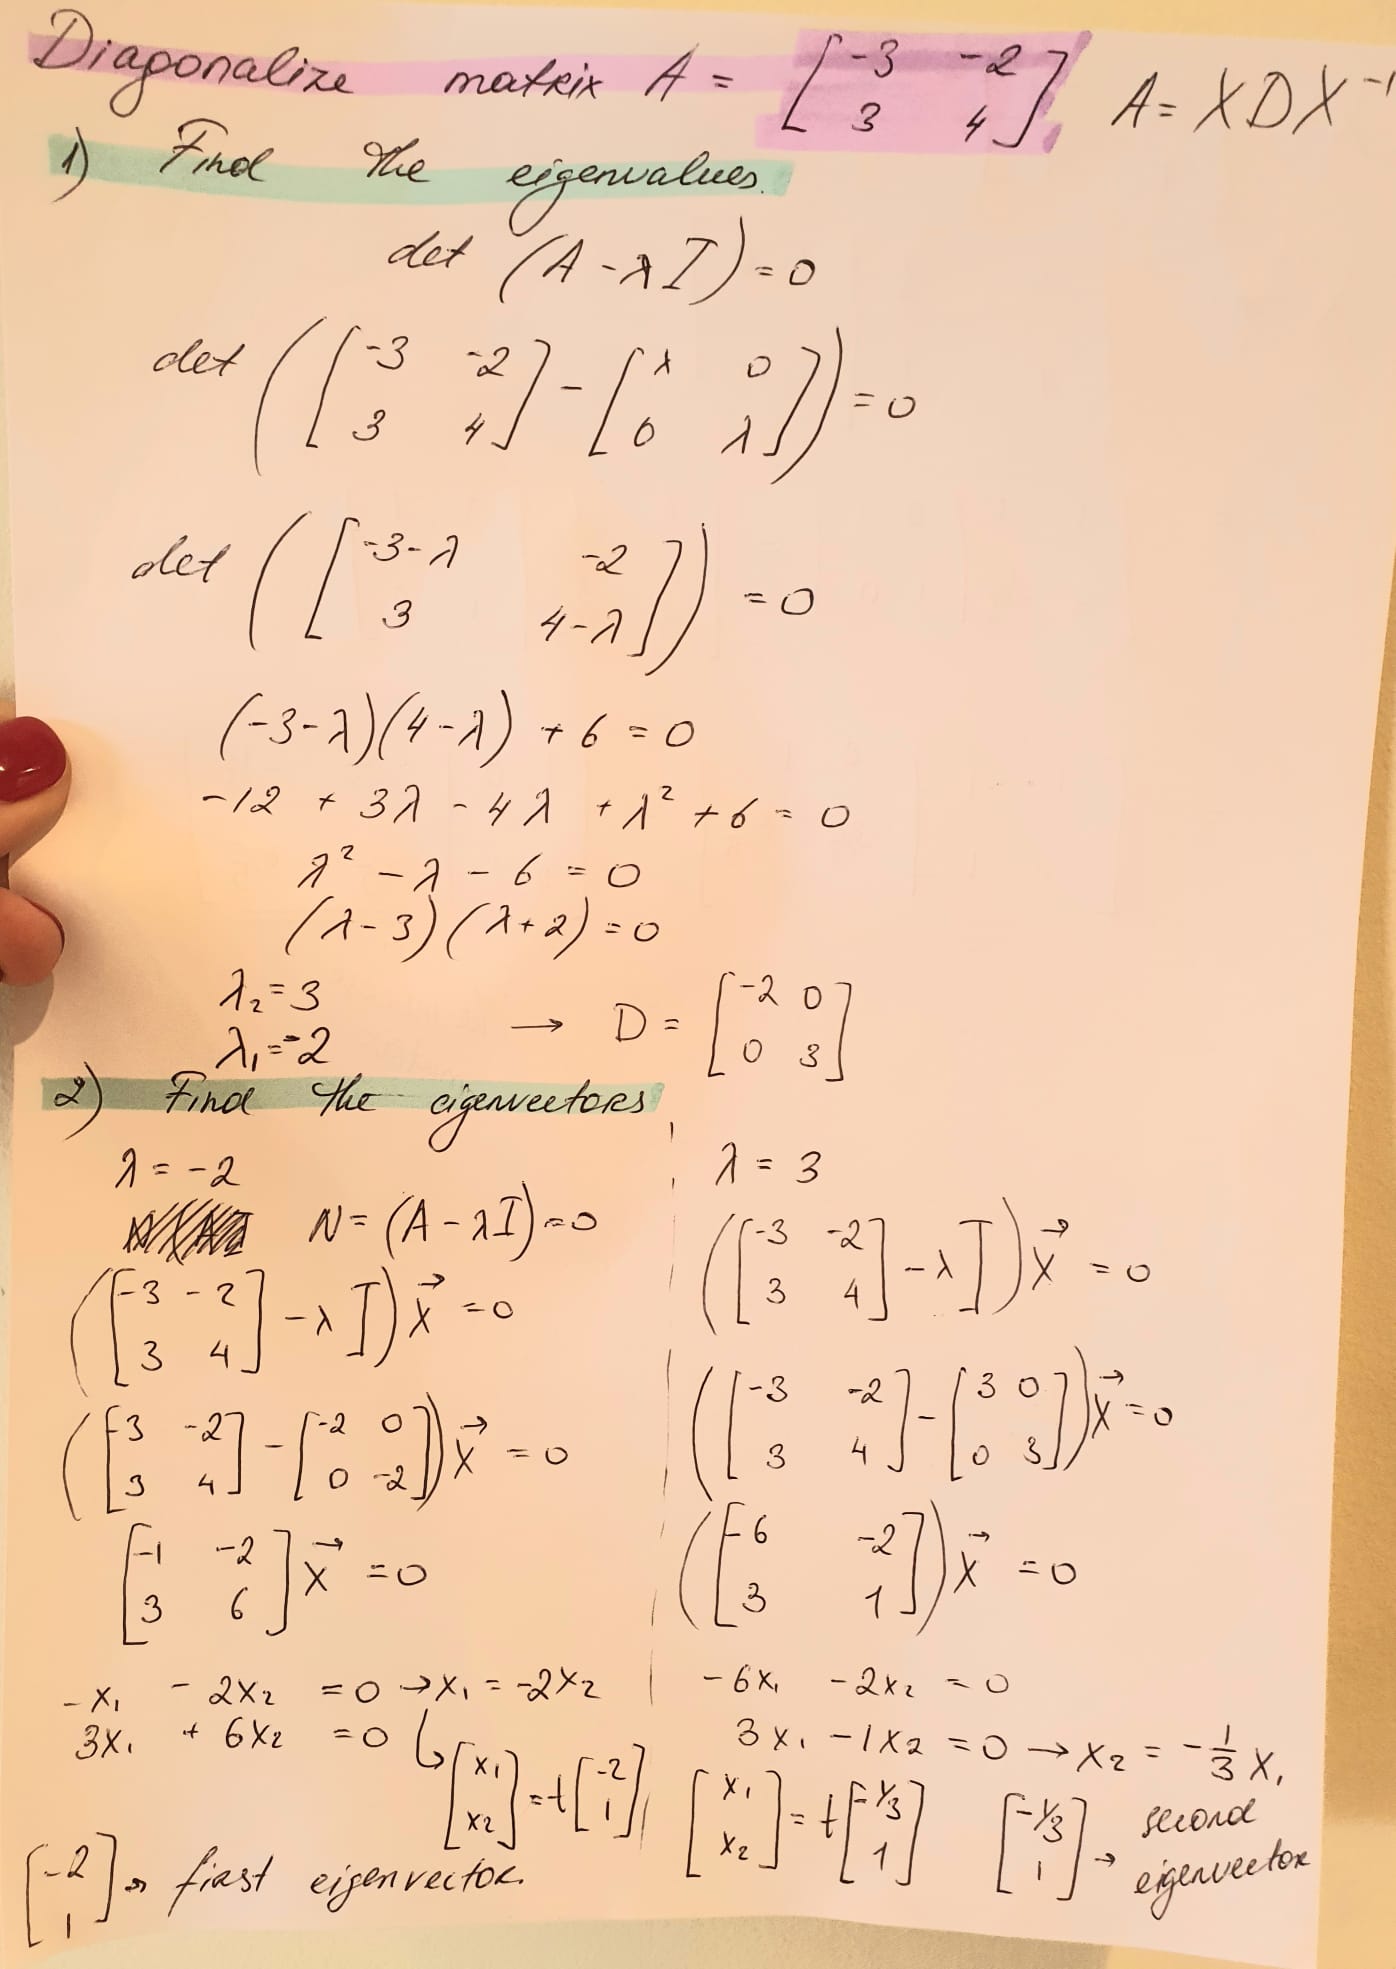 Diagonalize matrix A = [-3 -2; 3 4] A = XDX⁻¹
1) Find the eigenvalues.
det (A - λI) = 0
det ([-3 -2; 3 4] - [λ 0; 0 λ]) = 0
det ([-3-λ -2; 3 4-λ]) = 0
(-3-λ)(4-λ) + 6 = 0
-12 + 3λ - 4λ + λ² + 6 = 0
λ² - λ - 6 = 0
(λ-3)(λ+2) = 0
λ₂ = 3
λ₁ = -2 → D = [-2 0; 0 3]
2) Find the eigenvectors
λ = -2
N = (A - λI) = 0
([-3 -2; 3 4] - λI) x⃗ = 0
([-3 -2; 3 4] - [-2 0; 0 -2]) x⃗ = 0
[-1 -2; 3 6] x⃗ = 0
-x₁ - 2x₂ = 0 → x₁ = -2x₂
3x₁ + 6x₂ = 0
[x₁; x₂] = t[-2; 1]
[-2; 1] → first eigenvector.
λ = 3
([-3 -2; 3 4] - λI) x⃗ = 0
([-3 -2; 3 4] - [3 0; 0 3]) x⃗ = 0
([-6 -2; 3 1]) x⃗ = 0
-6x₁ - 2x₂ = 0
3x₁ - 1x₂ = 0 → x₂ = -1/3 x₁
[x₁; x₂] = t[-1/3; 1] [-1/3; 1] → second eigenvector